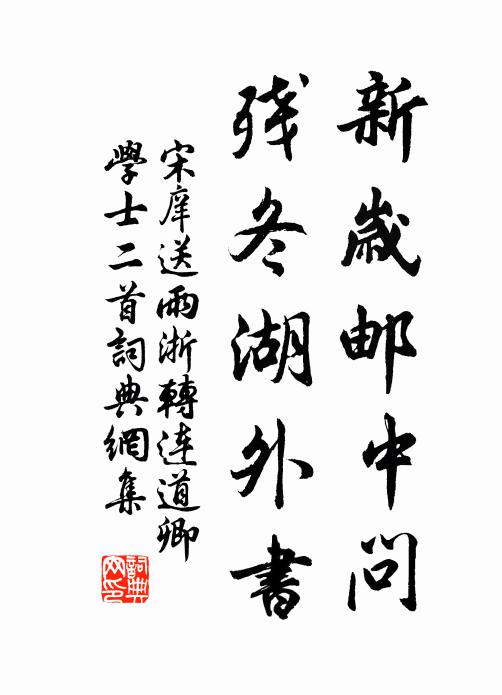 新歲邮中問
残冬湖外書
宋庠送兩浙轉连道卿
學士二首詞典網集
詞典網印